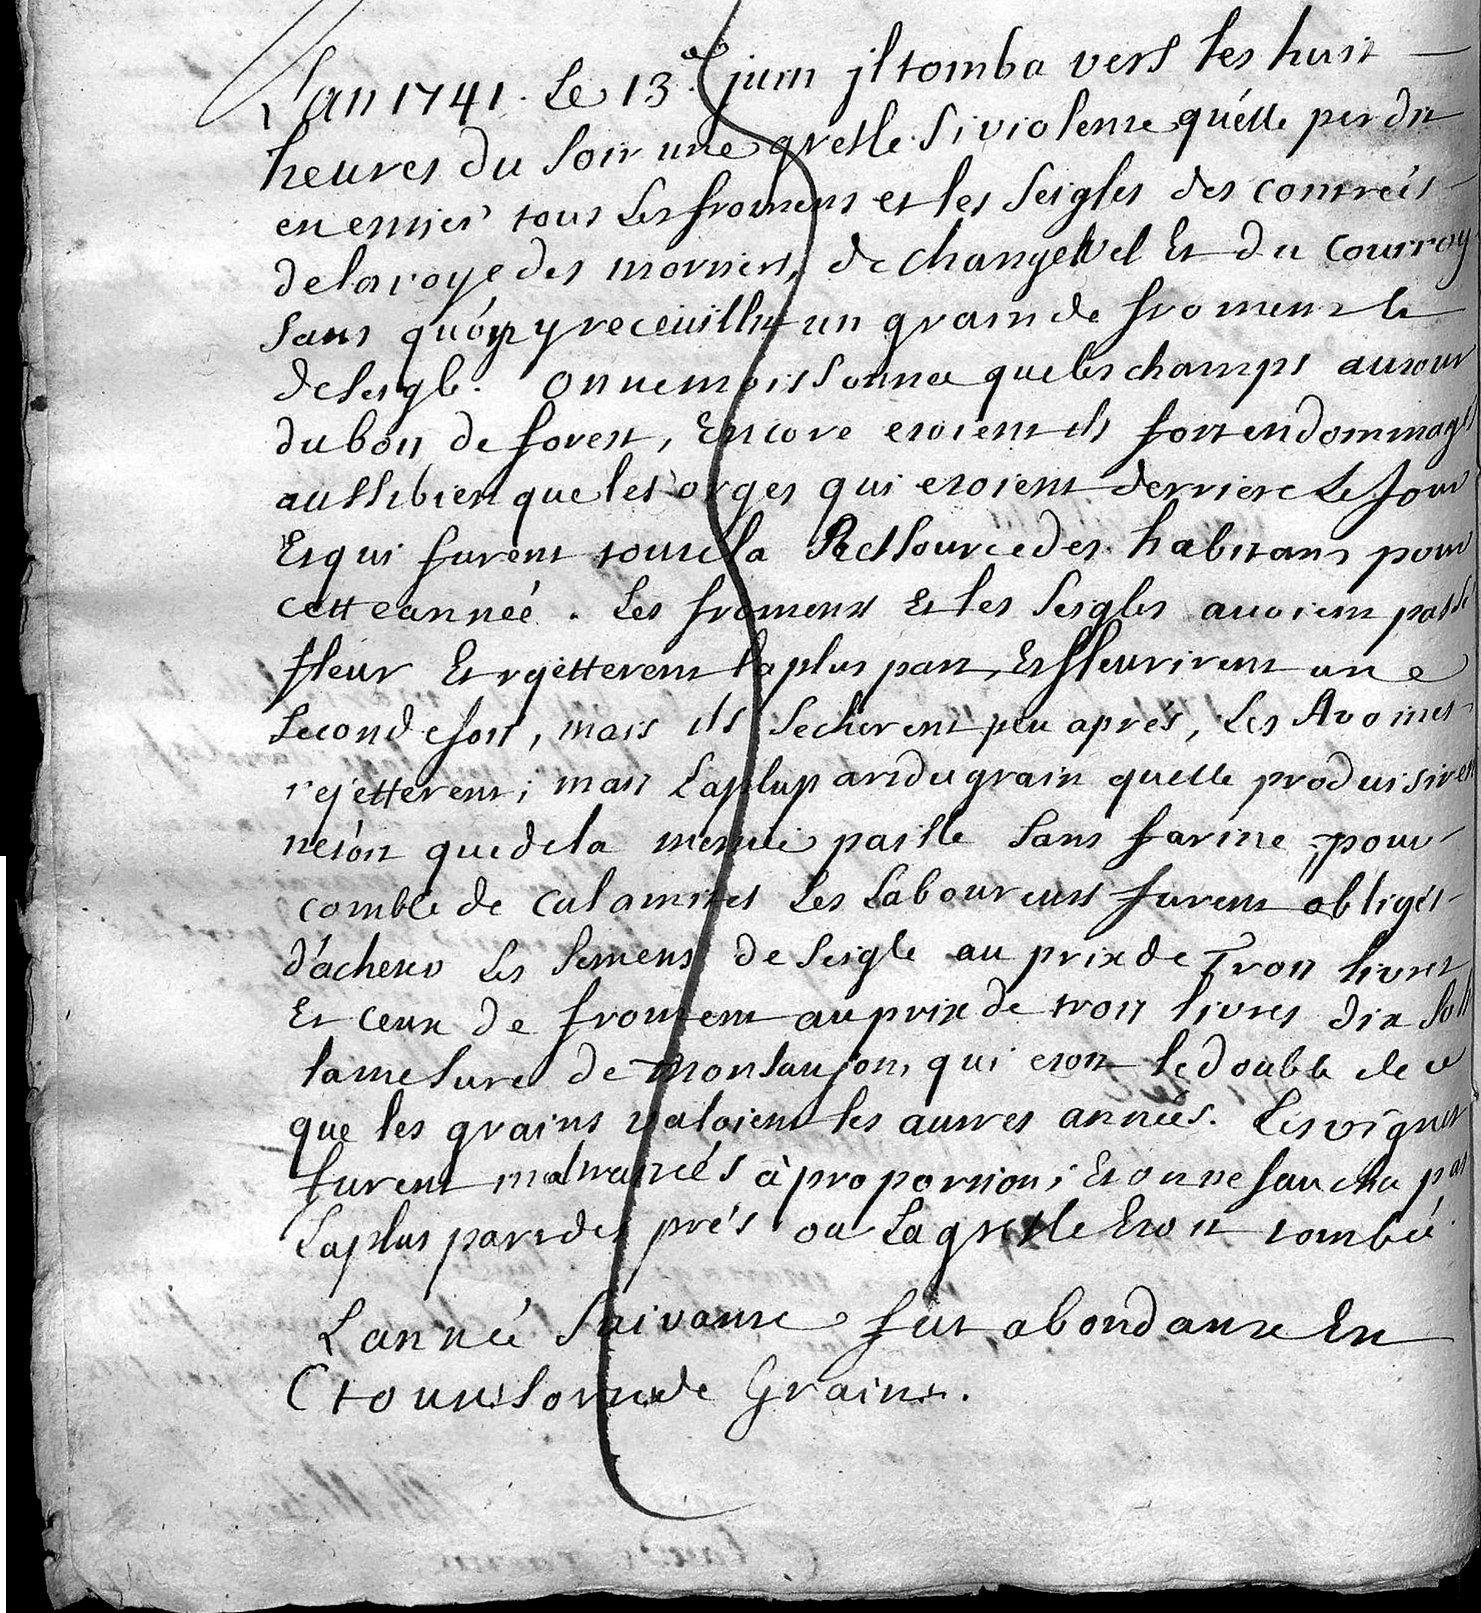 Lan 1741. Le 13.e juin jl tomba vers les huit
heures du soir une gresle si violente qu'elle perdit
en entier tous les fromens et les seigles des contreés
de la voye des morniers, de changevel Et du Courroy
sans qu'on y receuillit un grain de froment et
de seigle. on ne moissonna que les champs autour
du bois de forest, Encore etoient ils fort endommagés
aussi bien que les orges qui etoient derriere Le Jour
Et qui furent toute la Ressource des habitans pour
cette anneé. Les fromens Et les seigles avoient passé
fleur Et rejetterent la plus part, Et fleurirent une
seconde fois, mais ils secherent peu aprés, Les Avoines
rejetterent; mais La plupart du grain quelle produisirent
nétoit que de la menüe paille sans farine, pour
comble de calamités Les Laboureurs furent obligés
d'acheter Les semens de seigle au prix de Trois livres
Et ceux de froment au prix de trois livres dix sols
la mesure de montsaujon, qui etoit le double de ce
que les grains valoient les autres années. Les vignes
furent maltraitéés à proportion; Et on ne faucha pas
La plus part des prés ou La gresle Etoit tombeé.
L'anneé suivante fut abondante En
toutte sorte de Grains.